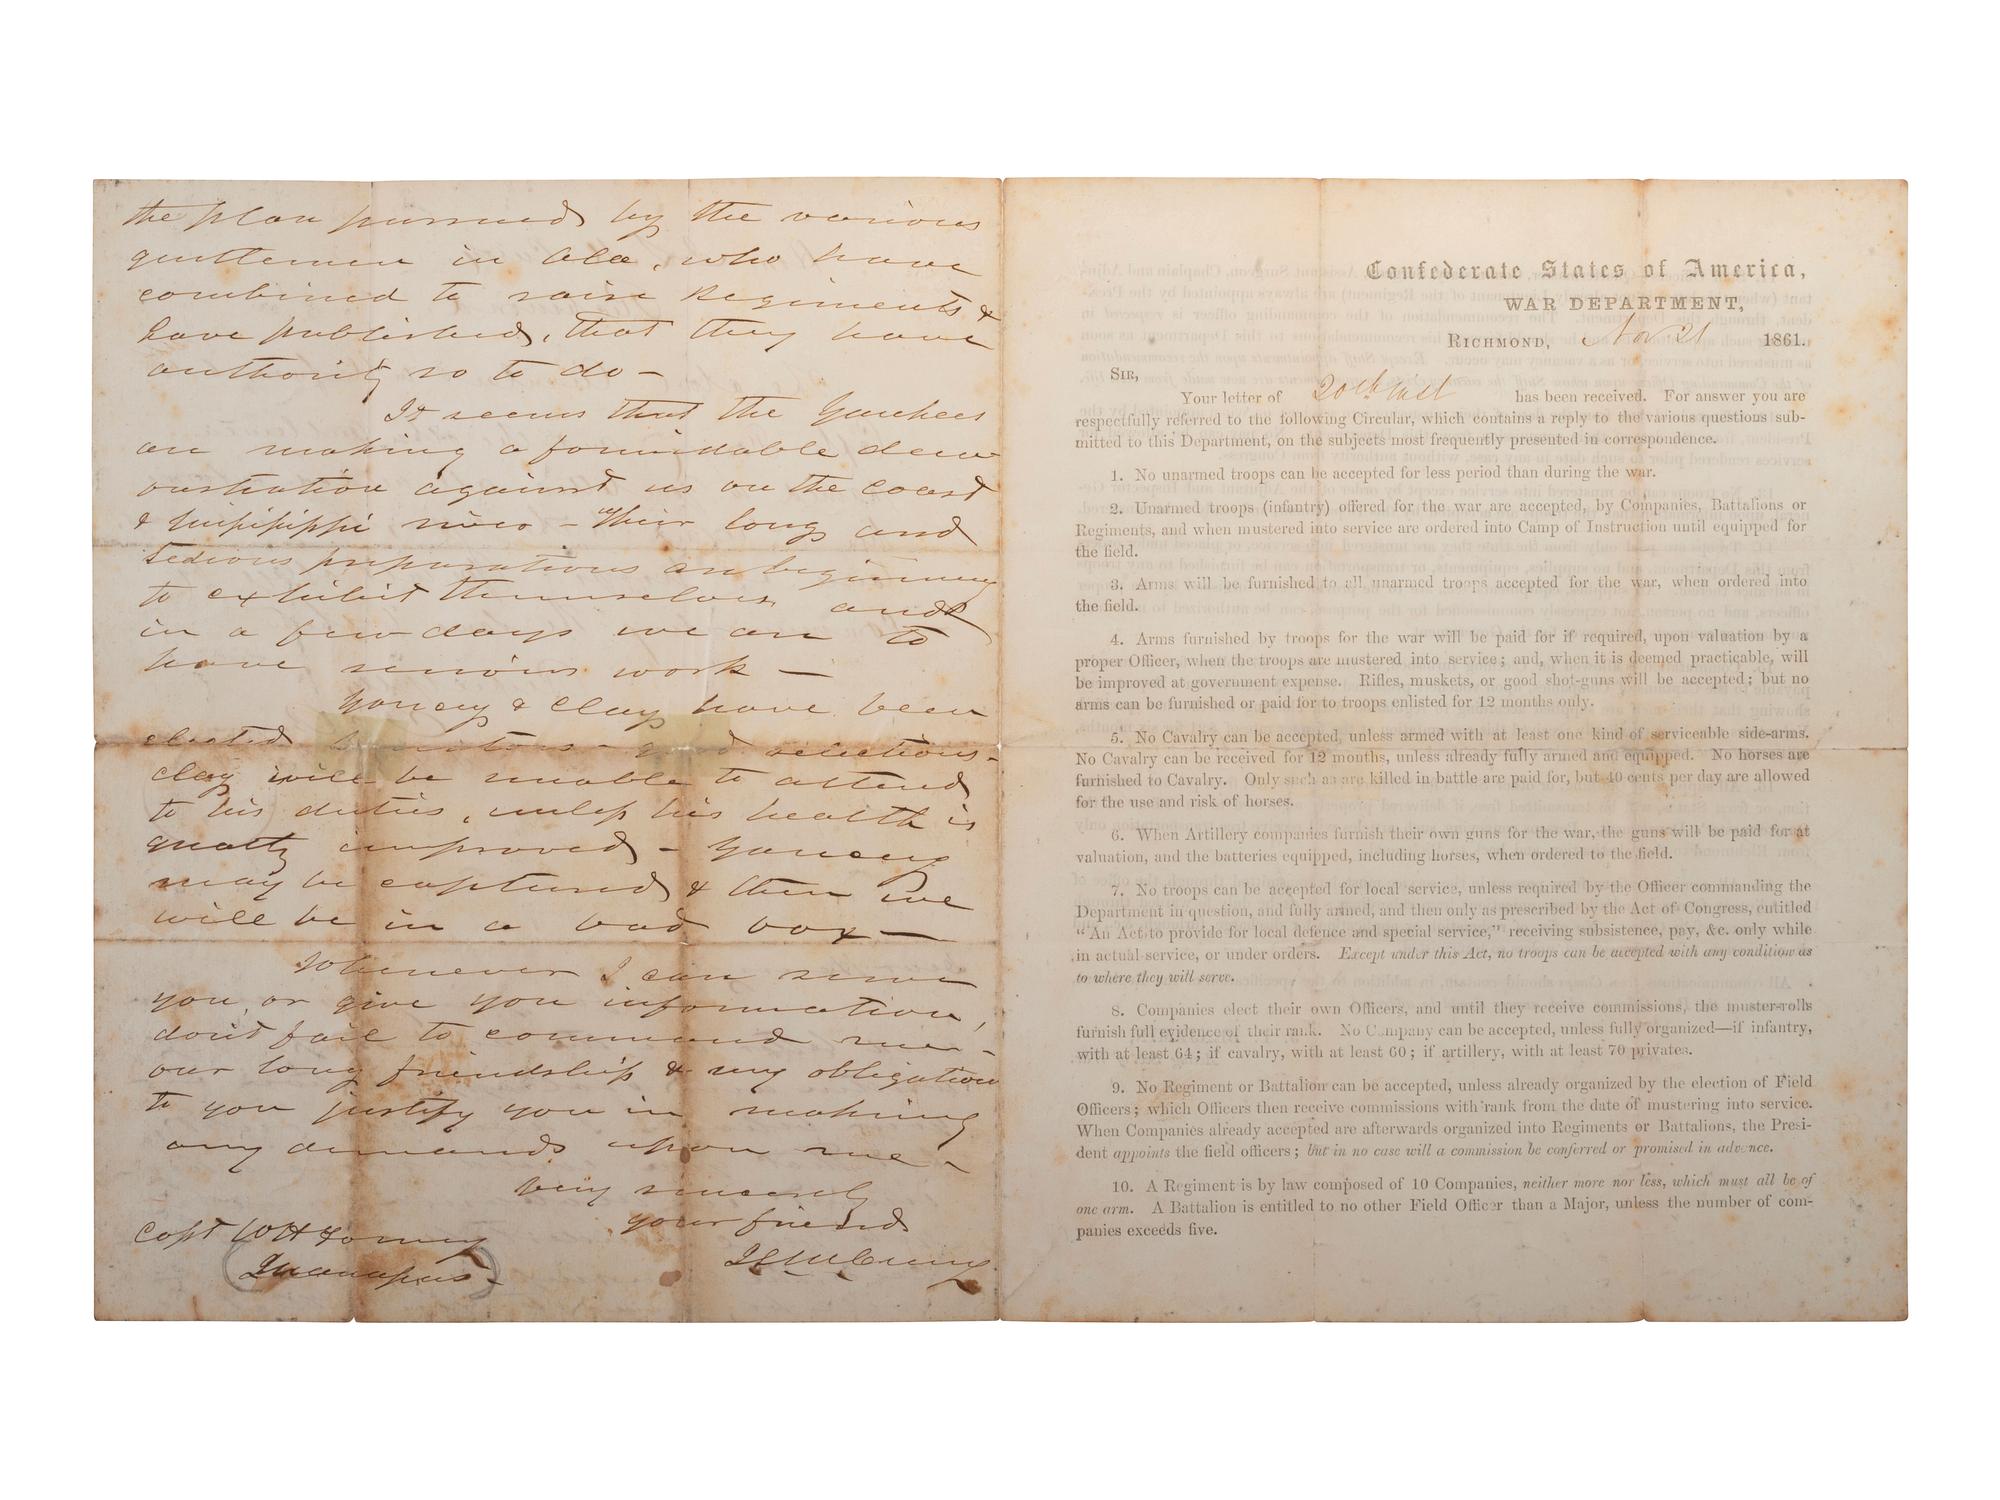 the plan pursued by the various
gentlemen in Ala, who have
combined to raise Regiments &
have published, that they have
authority so to do —
It seems that the Yankees
are making a formidable dem
onstration against us on the coast
& Mississippi river - Their long and
tedious preparations are beginning
to exhibit themselves and
in a few days we are to
have serious work —
Yancey & Clay have been
elected Senators - good selections -
Clay will be unable to attend
to his duties, unless his health is
greatly improved - Yancey
may be captured & then we
will be in a bad box —
Whenever I can serve
you, or give you information,
don't fail to command me -
our long friendship & my obligation
to you justify you in making
any demands upon me -
Very sincerely
your friend
Capt W H Forney
Manassas -
Confederate States of America,
WAR DEPARTMENT,
RICHMOND, Nov 21 1861.
SIR,
Your letter of 20th inst has been received. For answer you are
respectfully referred to the following Circular, which contains a reply to the various questions sub-
mitted to this Department, on the subjects most frequently presented in correspondence.
1. No unarmed troops can be accepted for less period than during the war.
2. Unarmed troops (infantry) offered for the war are accepted, by Companies, Battalions or
Regiments, and when mustered into service are ordered into Camp of Instruction until equipped for
the field.
3. Arms will be furnished to all unarmed troops accepted for the war, when ordered into
the field.
4. Arms furnished by troops for the war will be paid for if required, upon valuation by a
proper Officer, when the troops are mustered into service; and, when it is deemed practicable, will
be improved at government expense. Rifles, muskets, or good shot-guns will be accepted; but no
arms can be furnished or paid for to troops enlisted for 12 months only.
5. No Cavalry can be accepted, unless armed with at least one kind of serviceable side-arms.
No Cavalry can be received for 12 months, unless already fully armed and equipped. No horses are
furnished to Cavalry. Only such as are killed in battle are paid for, but 40 cents per day are allowed
for the use and risk of horses.
6. When Artillery companies furnish their own guns for the war, the guns will be paid for at
valuation, and the batteries equipped, including horses, when ordered to the field.
7. No troops can be accepted for local service, unless required by the Officer commanding the
Department in question, and fully armed, and then only as prescribed by the Act of Congress, entitled
"An Act to provide for local defence and special service," receiving subsistence, pay, &c. only while
in actual service, or under orders. Except under this Act, no troops can be accepted with any condition as
to where they will serve.
8. Companies elect their own Officers, and until they receive commissions, the muster-rolls
furnish full evidence of their rank. No Company can be accepted, unless fully organized—if infantry,
with at least 64; if cavalry, with at least 60; if artillery, with at least 70 privates.
9. No Regiment or Battalion can be accepted, unless already organized by the election of Field
Officers; which Officers then receive commissions with rank from the date of mustering into service.
When Companies already accepted are afterwards organized into Regiments or Battalions, the Presi-
dent appoints the field officers; but in no case will a commission be conferred or promised in advance.
10. A Regiment is by law composed of 10 Companies, neither more nor less, which must all be of
one arm. A Battalion is entitled to no other Field Officer than a Major, unless the number of com-
panies exceeds five.